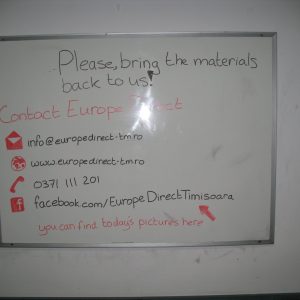 Please, bring the materials
back to us!
Contact Europe Direct
info@europedirect-tm.ro
www.europedirect-tm.ro
0371 111 201
facebook.com/EuropeDirectTimisoara
you can find today's pictures here